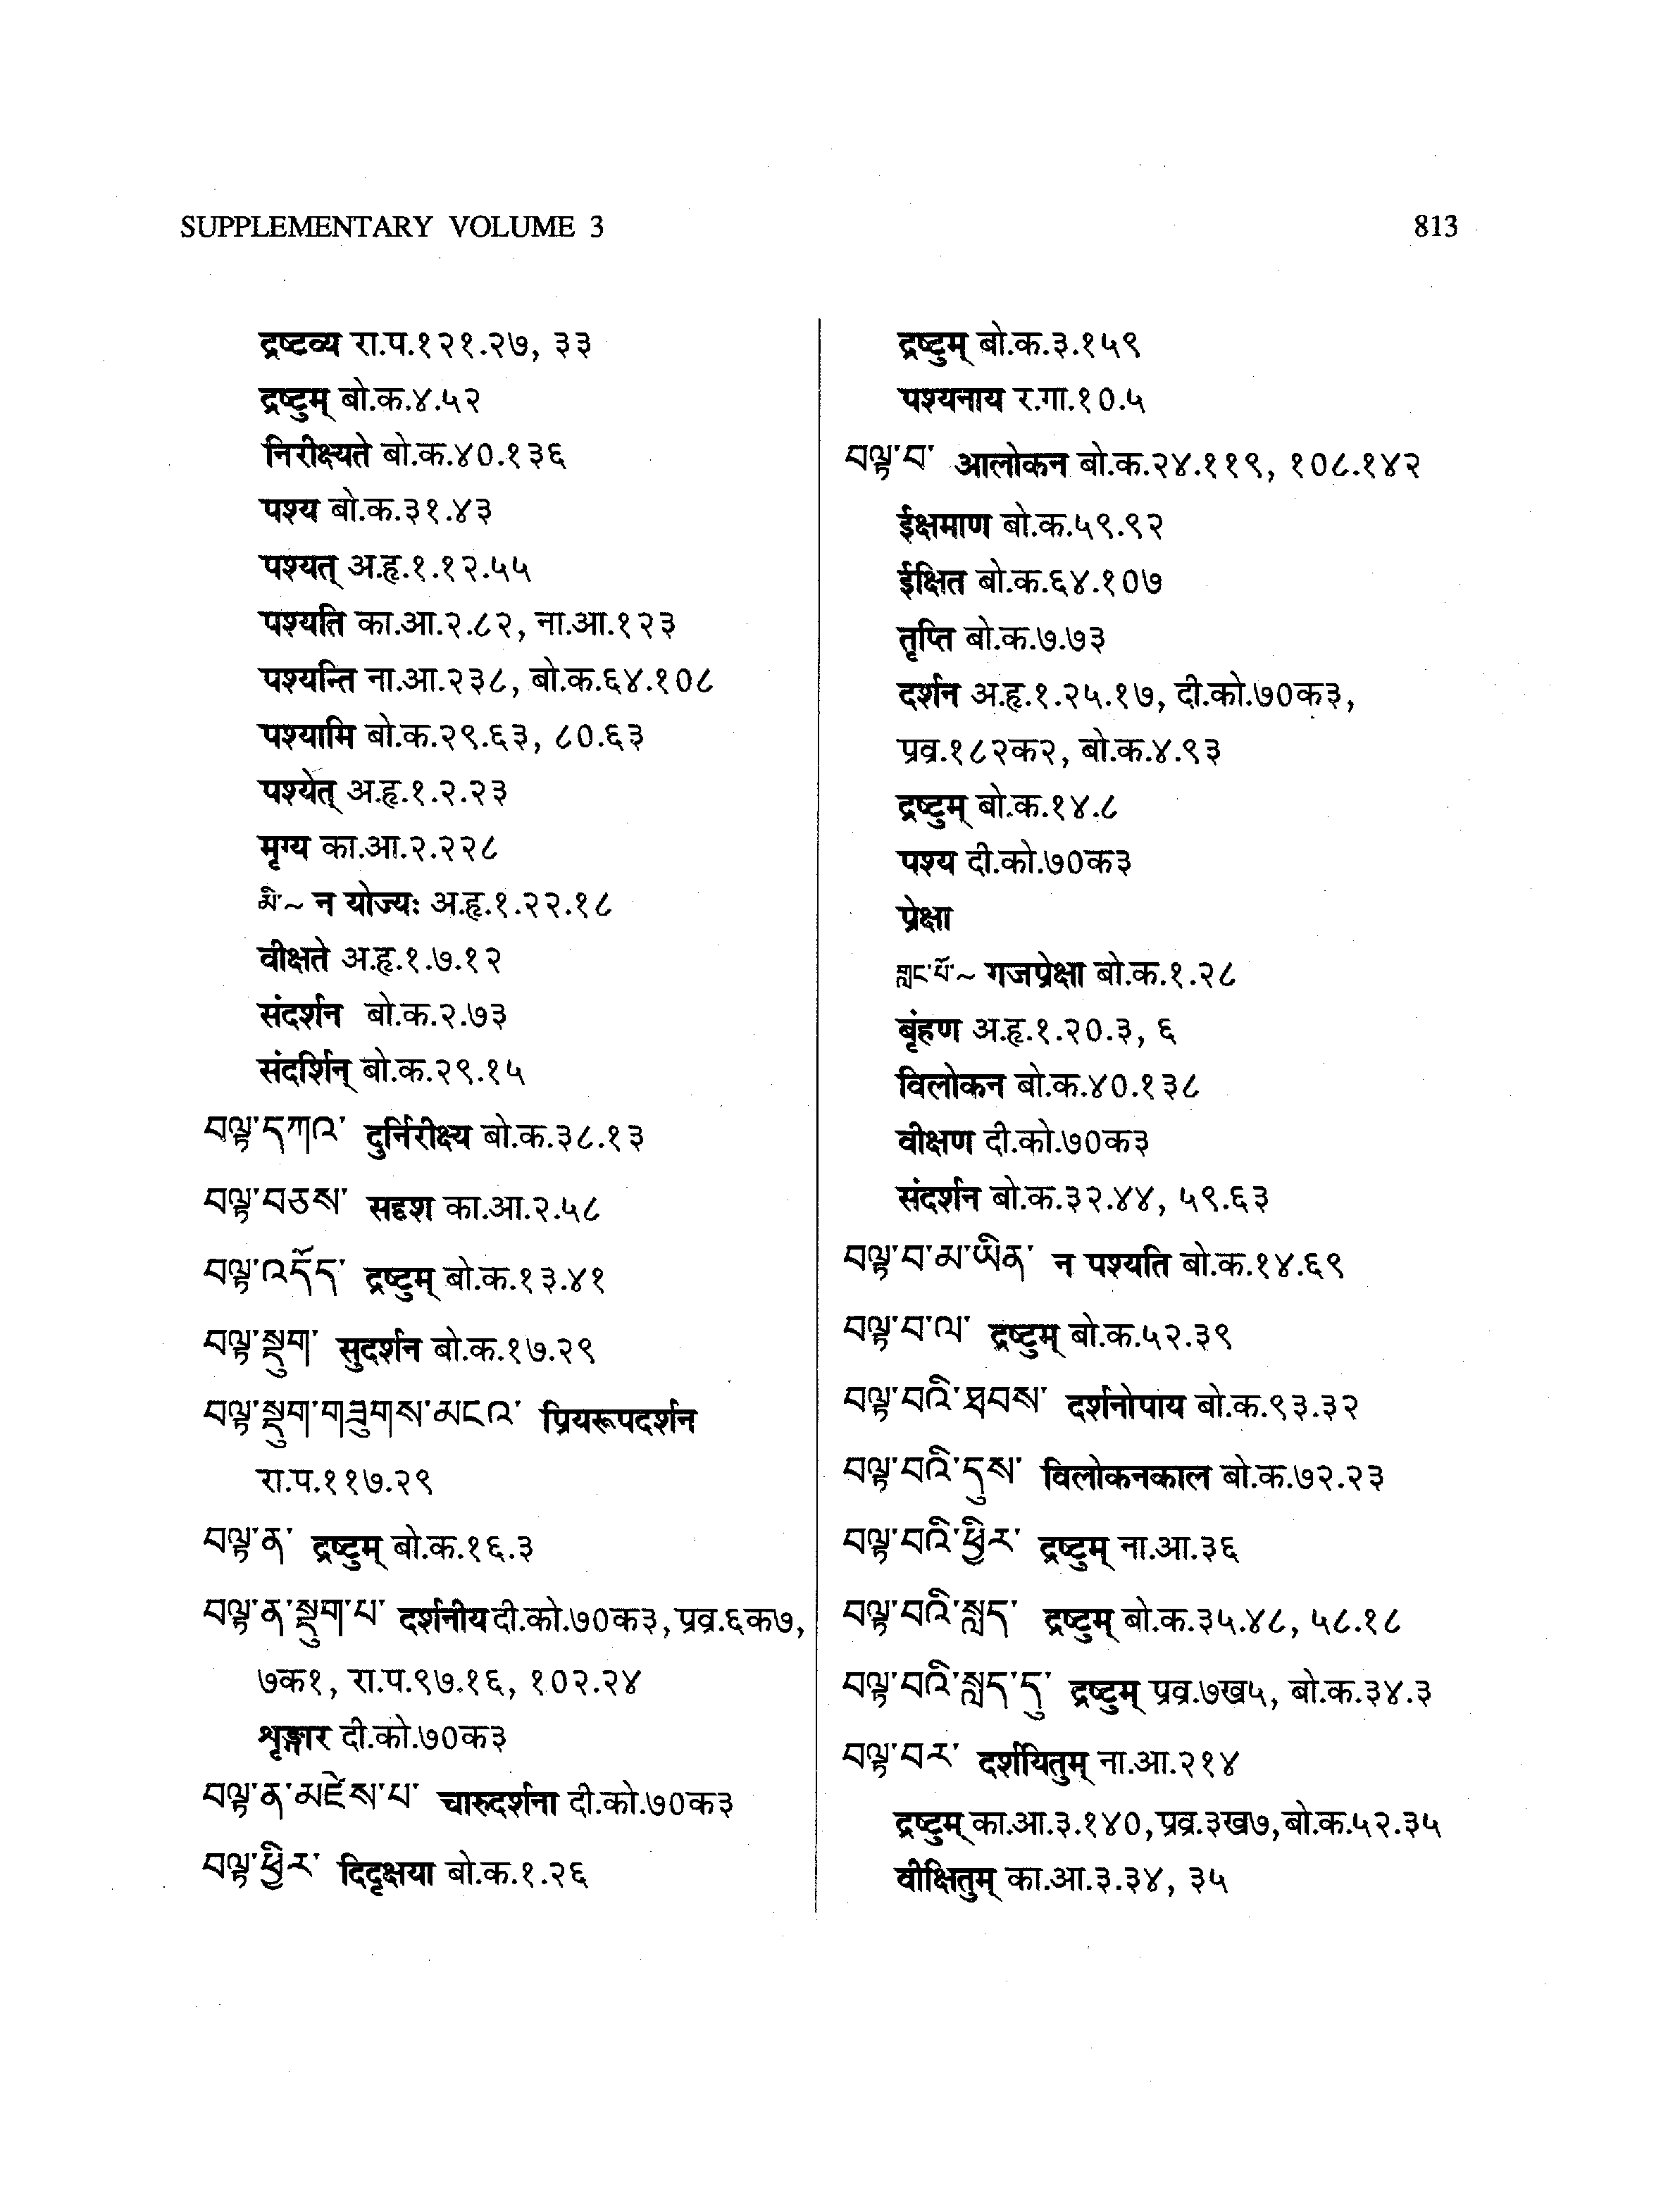 SUPPLEMENTARY VOLUME 3
813
द्रष्टव्य रा.प.१२१.२७, ३३
द्रष्टुम् बो.क.४.५२
निरीक्ष्यते बो.क.४०.१३६
पश्य बो.क.३१.४३
पश्यत् अ.हृ.१.१२.५५
पश्यति का.आ.२.८२, ना.आ.१२३
पश्यन्ति ना.आ.२३८, बो.क.६४.१०८
पश्यामि बो.क.२९.६३, ८०.६३
पश्येत् अ.हृ.१.२.२३
मृग्य का.आ.२.२२८
མི་~ न योज्यः अ.हृ.१.२२.१८
वीक्षते अ.हृ.१.७.१२
संदर्शन बो.क.२.७३
संदर्शिन् बो.क.२९.१५
བལྟ་དཀའ་ दुर्निरीक्ष्य बो.क.३८.१३
བལྟ་བཅས་ सदृश का.आ.२.५८
བལྟ་འདོད་ द्रष्टुम् बो.क.१३.४१
བལྟ་སྡུག་ सुदर्शन बो.क.१७.२९
བལྟ་སྡུག་གཟུགས་མངའ་ प्रियरूपदर्शन
रा.प.११७.२९
བལྟ་ན་ द्रष्टुम् बो.क.१६.३
བལྟ་ན་སྡུག་པ་ दर्शनीय दी.को.७०क३, प्रव्र.६क७,
७क१, रा.प.९७.१६, १०२.२४
शृङ्गार दी.को.७०क३
བལྟ་ན་མཛེས་པ་ चारुदर्शना दी.को.७०क३
བལྟ་ཕྱིར་ दिदृक्षया बो.क.१.२६
द्रष्टुम् बो.क.३.१५९
पश्यनाय र.गा.१०.५
བལྟ་བ་ आलोकन बो.क.२४.११९, १०८.१४२
ईक्षमाण बो.क.५९.९२
ईक्षित बो.क.६४.१०७
तृप्ति बो.क.७.७३
दर्शन अ.हृ.१.२५.१७, दी.को.७०क३,
प्रव्र.१८२क२, बो.क.४.९३
द्रष्टुम् बो.क.१४.८
पश्य दी.को.७०क३
प्रेक्षा
གླང་པོ་~ गजप्रेक्षा बो.क.१.२८
बृंहण अ.हृ.१.२०.३, ६
विलोकन बो.क.४०.१३८
वीक्षण दी.को.७०क३
संदर्शन बो.क.३२.४४, ५९.६३
བལྟ་བ་མ་ཡིན་ न पश्यति बो.क.१४.६९
བལྟ་བ་ལ་ द्रष्टुम् बो.क.५२.३९
བལྟ་བའི་ཐབས་ दर्शनोपाय बो.क.९३.३२
བལྟ་བའི་དུས་ विलोकनकाल बो.क.७२.२३
བལྟ་བའི་ཕྱིར་ द्रष्टुम् ना.आ.३६
བལྟ་བའི་སླད་ द्रष्टुम् बो.क.३५.४८, ५८.१८
བལྟ་བའི་སླད་དུ་ द्रष्टुम् प्रव्र.७ख५, बो.क.३४.३
བལྟ་བར་ दर्शयितुम् ना.आ.२१४
द्रष्टुम् का.आ.३.१४०, प्रव्र.३ख७, बो.क.५२.३५
वीक्षितुम् का.आ.३.३४, ३५